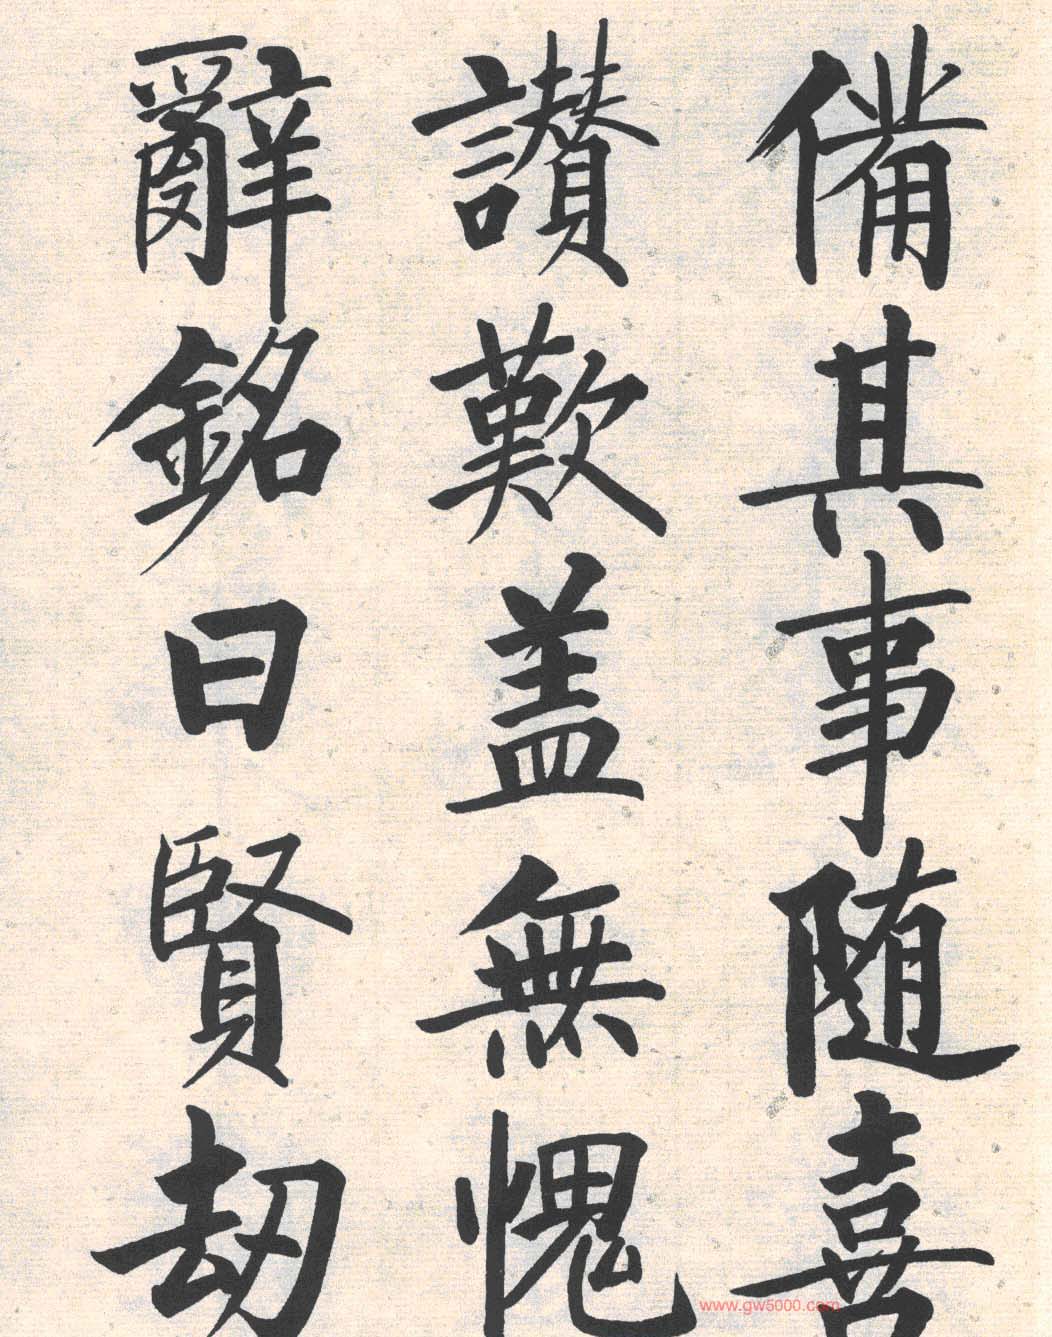 備其事随喜
讃歎盖無愧
辭銘曰賢劫
www.gw5000.com